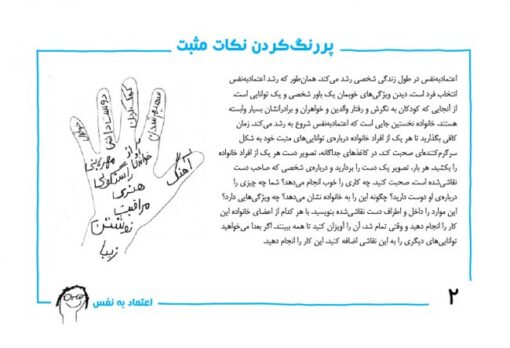 پررنگ‌کردن نکات مثبت
اعتمادبه‌نفس در طول زندگی شخصی رشد می‌کند، همان‌طور که رشد اعتمادبه‌نفس
انتخاب فرد است. دیدن ویژگی‌های خوبمان یک باور شخصی و یک توانایی است.
از آنجایی که کودکان به نگرش و رفتار والدین و خواهران و برادرانشان بسیار وابسته
هستند، خانواده نخستین جایی است که اعتمادبه‌نفس شروع به رشد می‌کند. زمان
کافی بگذارید تا هر یک از افراد خانواده درباره‌ی توانایی‌های مثبت خود به شکل
سرگرم‌کننده‌ای صحبت کند. در کاغذهای جداگانه، تصویر دست هر یک از افراد خانواده
را بکشید. هر بار، تصویر یک دست را بردارید و درباره‌ی شخصی که صاحب دست
نقاشی‌شده است، صحبت کنید. چه کاری را خوب انجام می‌دهد؟ شما چه چیزی را
درباره‌ی او دوست دارید؟ چگونه این را به خانواده نشان می‌دهد؟ چه ویژگی‌هایی دارد؟
این موارد را داخل و اطراف دست نقاشی‌شده بنویسید. با هر کدام از اعضای خانواده این
کار را انجام دهید و وقتی تمام شد، آن را آویزان کنید تا همه ببینند. اگر بعداً می‌خواهید
توانایی‌های دیگری را به این نقاشی اضافه کنید، این کار را انجام دهید.
دوست‌داشتنی
کمک‌کردن
سهیم‌شدن
مهربانی
آواز
خواندن
راستگویی
آهنگ
هنری
مراقبت
نوشتن
زیبا
اعتماد به نفس
۲